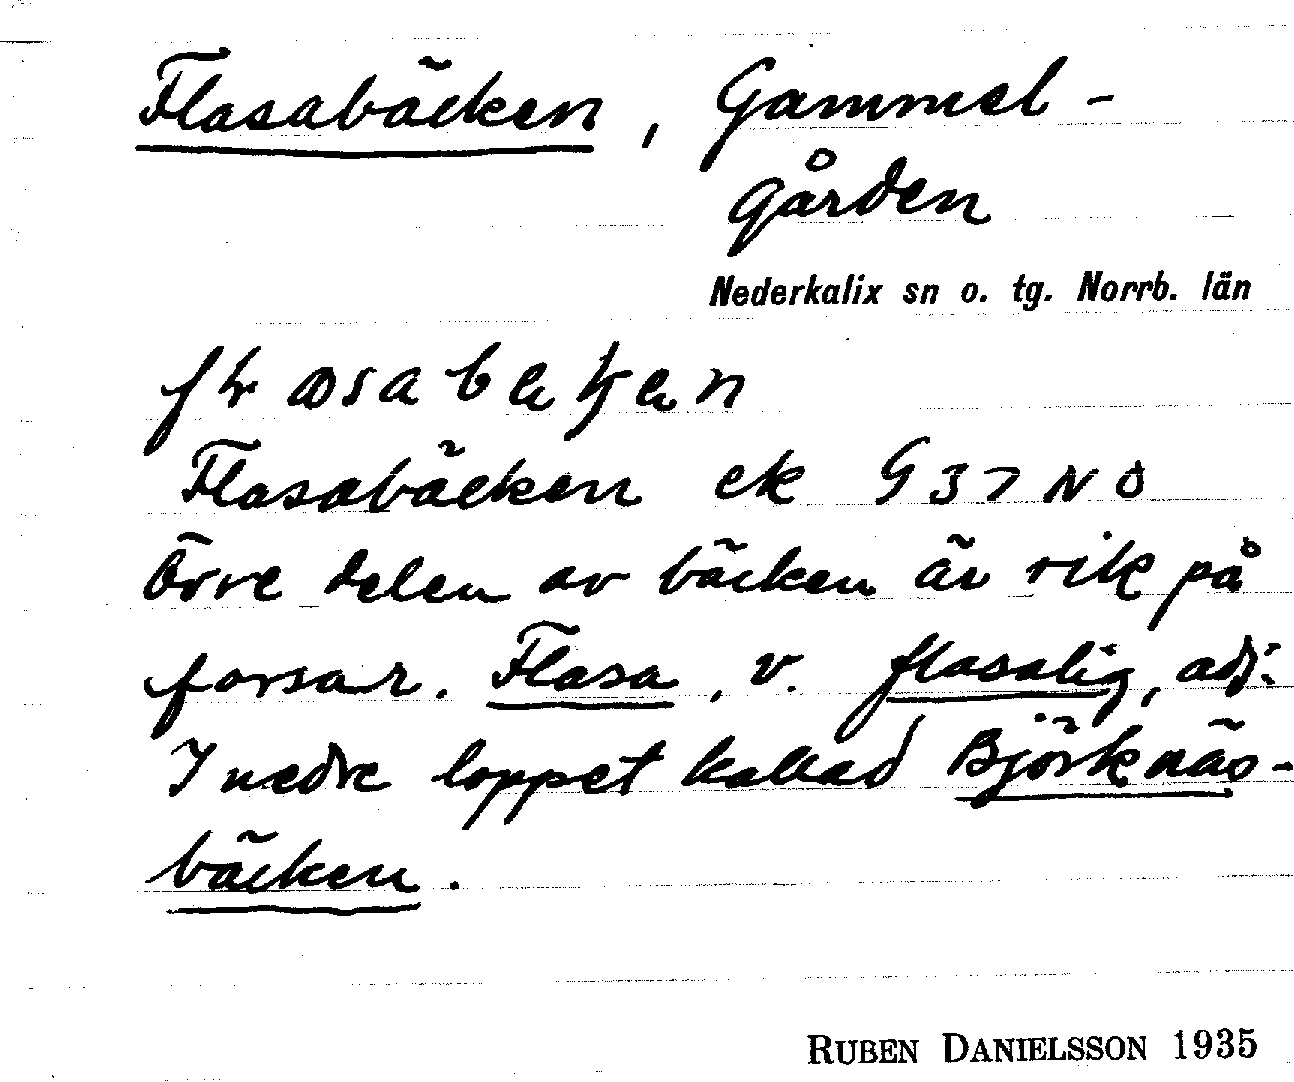 Flasabäcken, Gammel-
gården
Nederkalix sn o. tg. Norrb. län
Flasabäcken ek G 37 NO
Övre delen av bäcken är rik på
forsar. Flasa, v. flasalig, adj.
I nedre loppet kallad Björknäs-
bäcken.
RUBEN DANIELSSON 1935